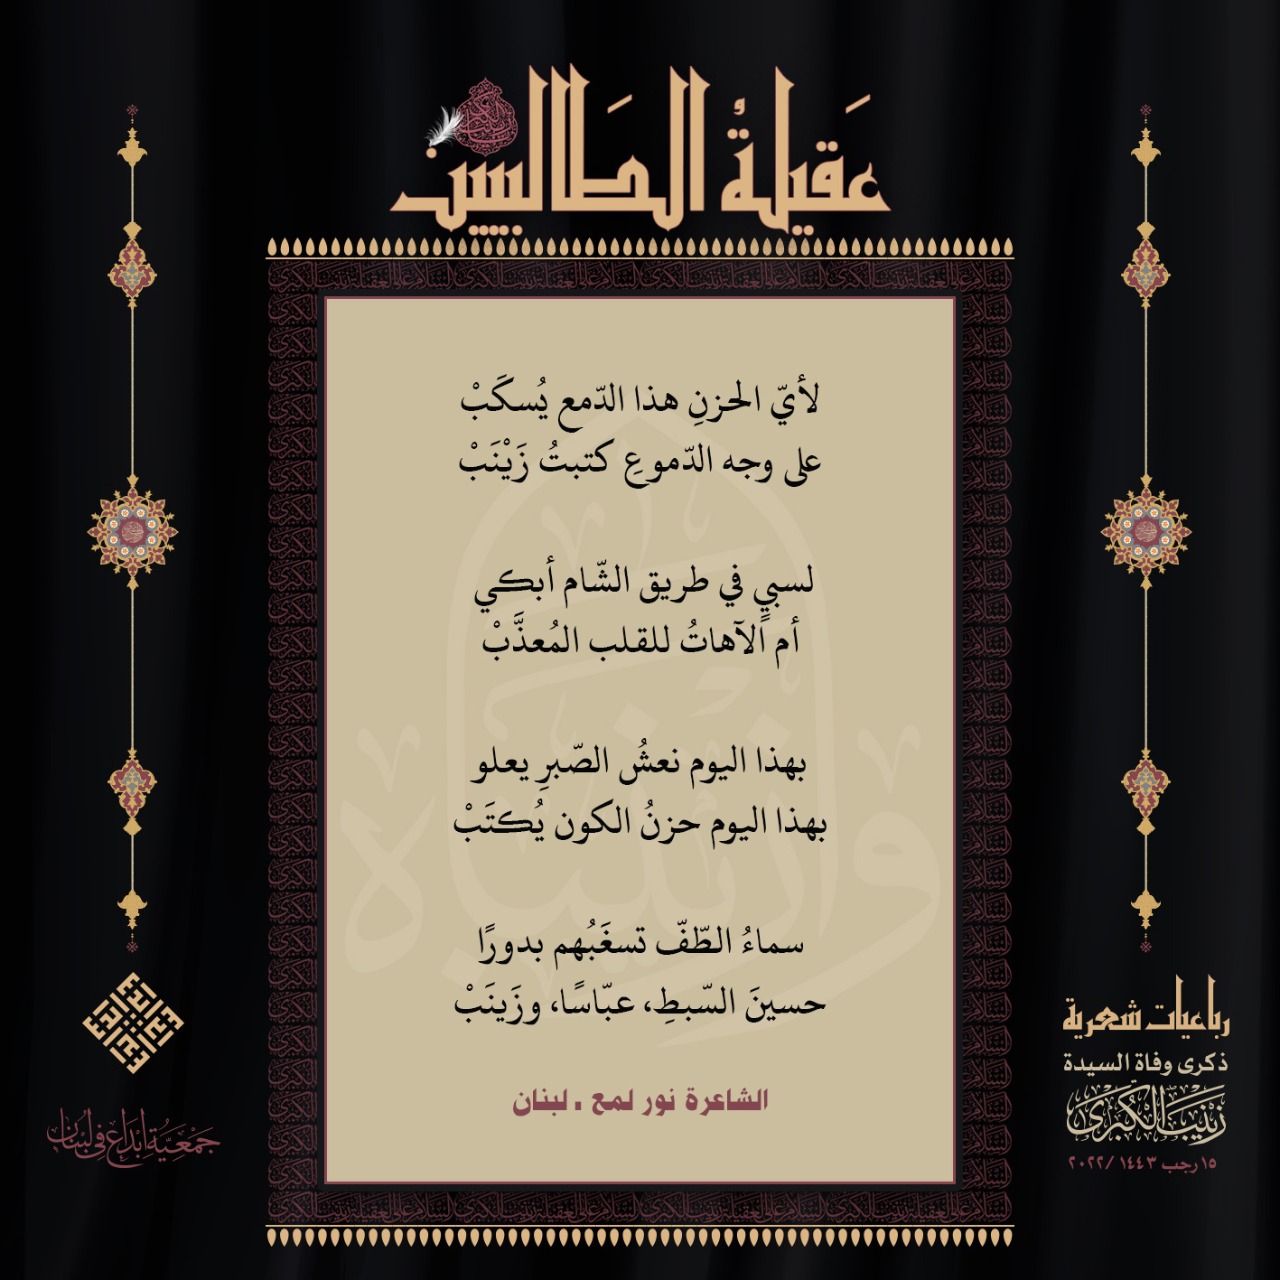 عَقيلةُ الطَالبيين
لأيّ الحزنِ هذا الدّمع يُسكَبْ
على وجه الدّموعِ كتبتُ زَيْنَبْ
لسبيٍ في طريق الشّام أبكي
أم الآهاتُ للقلب المُعذَّبْ
بهذا اليوم نعشُ الصّبرِ يعلو
بهذا اليوم حزنُ الكون يُكتَبْ
سماءُ الطّفّ تسغَبُهم بدورًا
حسينَ السّبطِ، عبّاسًا، وزَينَبْ
الشاعرة نور لمع . لبنان
رباعيات شعرية
ذكرى وفاة السيدة
زَيْنَبَ الْكُبْرَىٰ
١٥ رجب ١٤٤٣ /٢٠٢٢
جَمْعِيَّةُ إبْدَاع فِي لُبْنَان